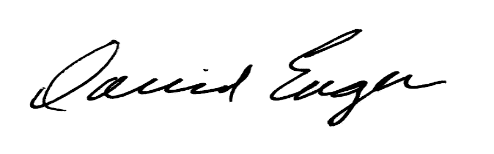 David Enger